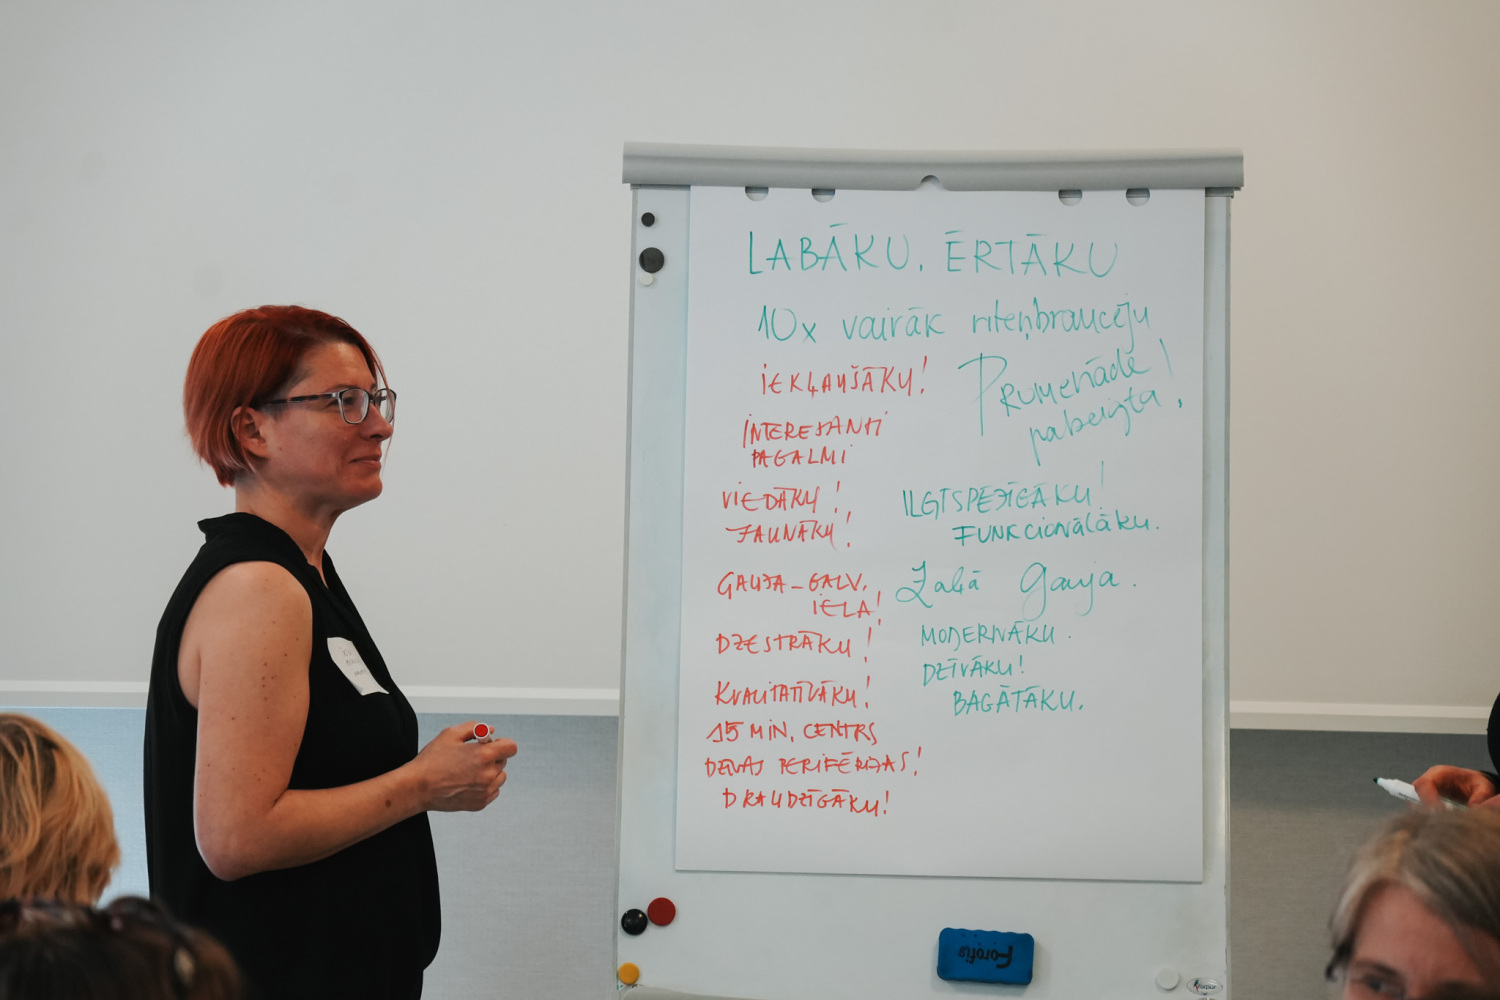 LABĀKU, ĒRTĀKU
10x vairāk riteņbraucēju
IEKĻAUŠĀKU!
PROMENĀDE
pabeigta!
INTERESANTI
PAGALMI
VIEDĀKU!
JAUNĀKU!
ILGTSPĒJĪGĀKU!
FUNKCIONĀLĀKU.
GAUJA – GALV.
IELA!
Zaļā Gauja.
DZESTRĀKU!
MODERNĀKU.
DZĪVĀKU!
BAGĀTĀKU.
KVALITATĪVĀKU!
15 MIN. CENTRS
PERIFĒRIJAS!
DRAUDZĪGĀKU!
Forofis